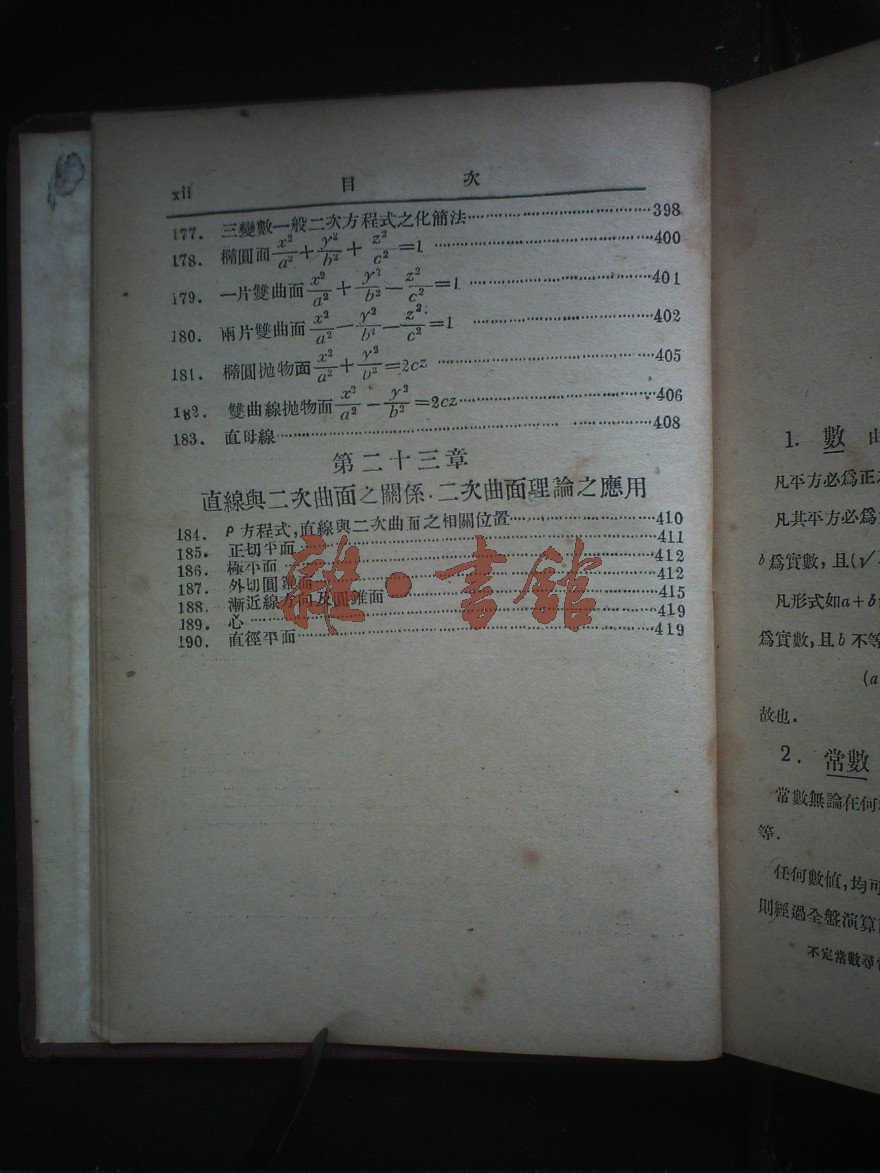 xii 目 次
177. 三變數一般二次方程式之化簡法 398
178. 橢圓面 x²/a² + y²/b² + z²/c² = 1 400
179. 一片雙曲面 x²/a² + y²/b² − z²/c² = 1 401
180. 兩片雙曲面 x²/a² − y²/b² − z²/c² = 1 402
181. 橢圓拋物面 x²/a² + y²/b² = 2cz 405
182. 雙曲線拋物面 x²/a² − y²/b² = 2cz 406
183. 直母線 408
第二十三章
直線與二次曲面之關係．二次曲面理論之應用
184. ρ方程式,直線與二次曲面之相關位置 410
185. 正切平面 411
186. 極平面 412
187. 外切圓錐面 412
188. 漸近線方向及圓錐面 415
189. 心 419
190. 直徑平面 419
雜·書館
1. 數
凡平方必爲正
凡其平方必爲
b爲實數, 且(√
凡形式如a+b
爲實數, 且b不等
(a
故也.
2. 常數
常數無論在何
等.
任何數値,均可
則經過全盤演算
不定常數尋